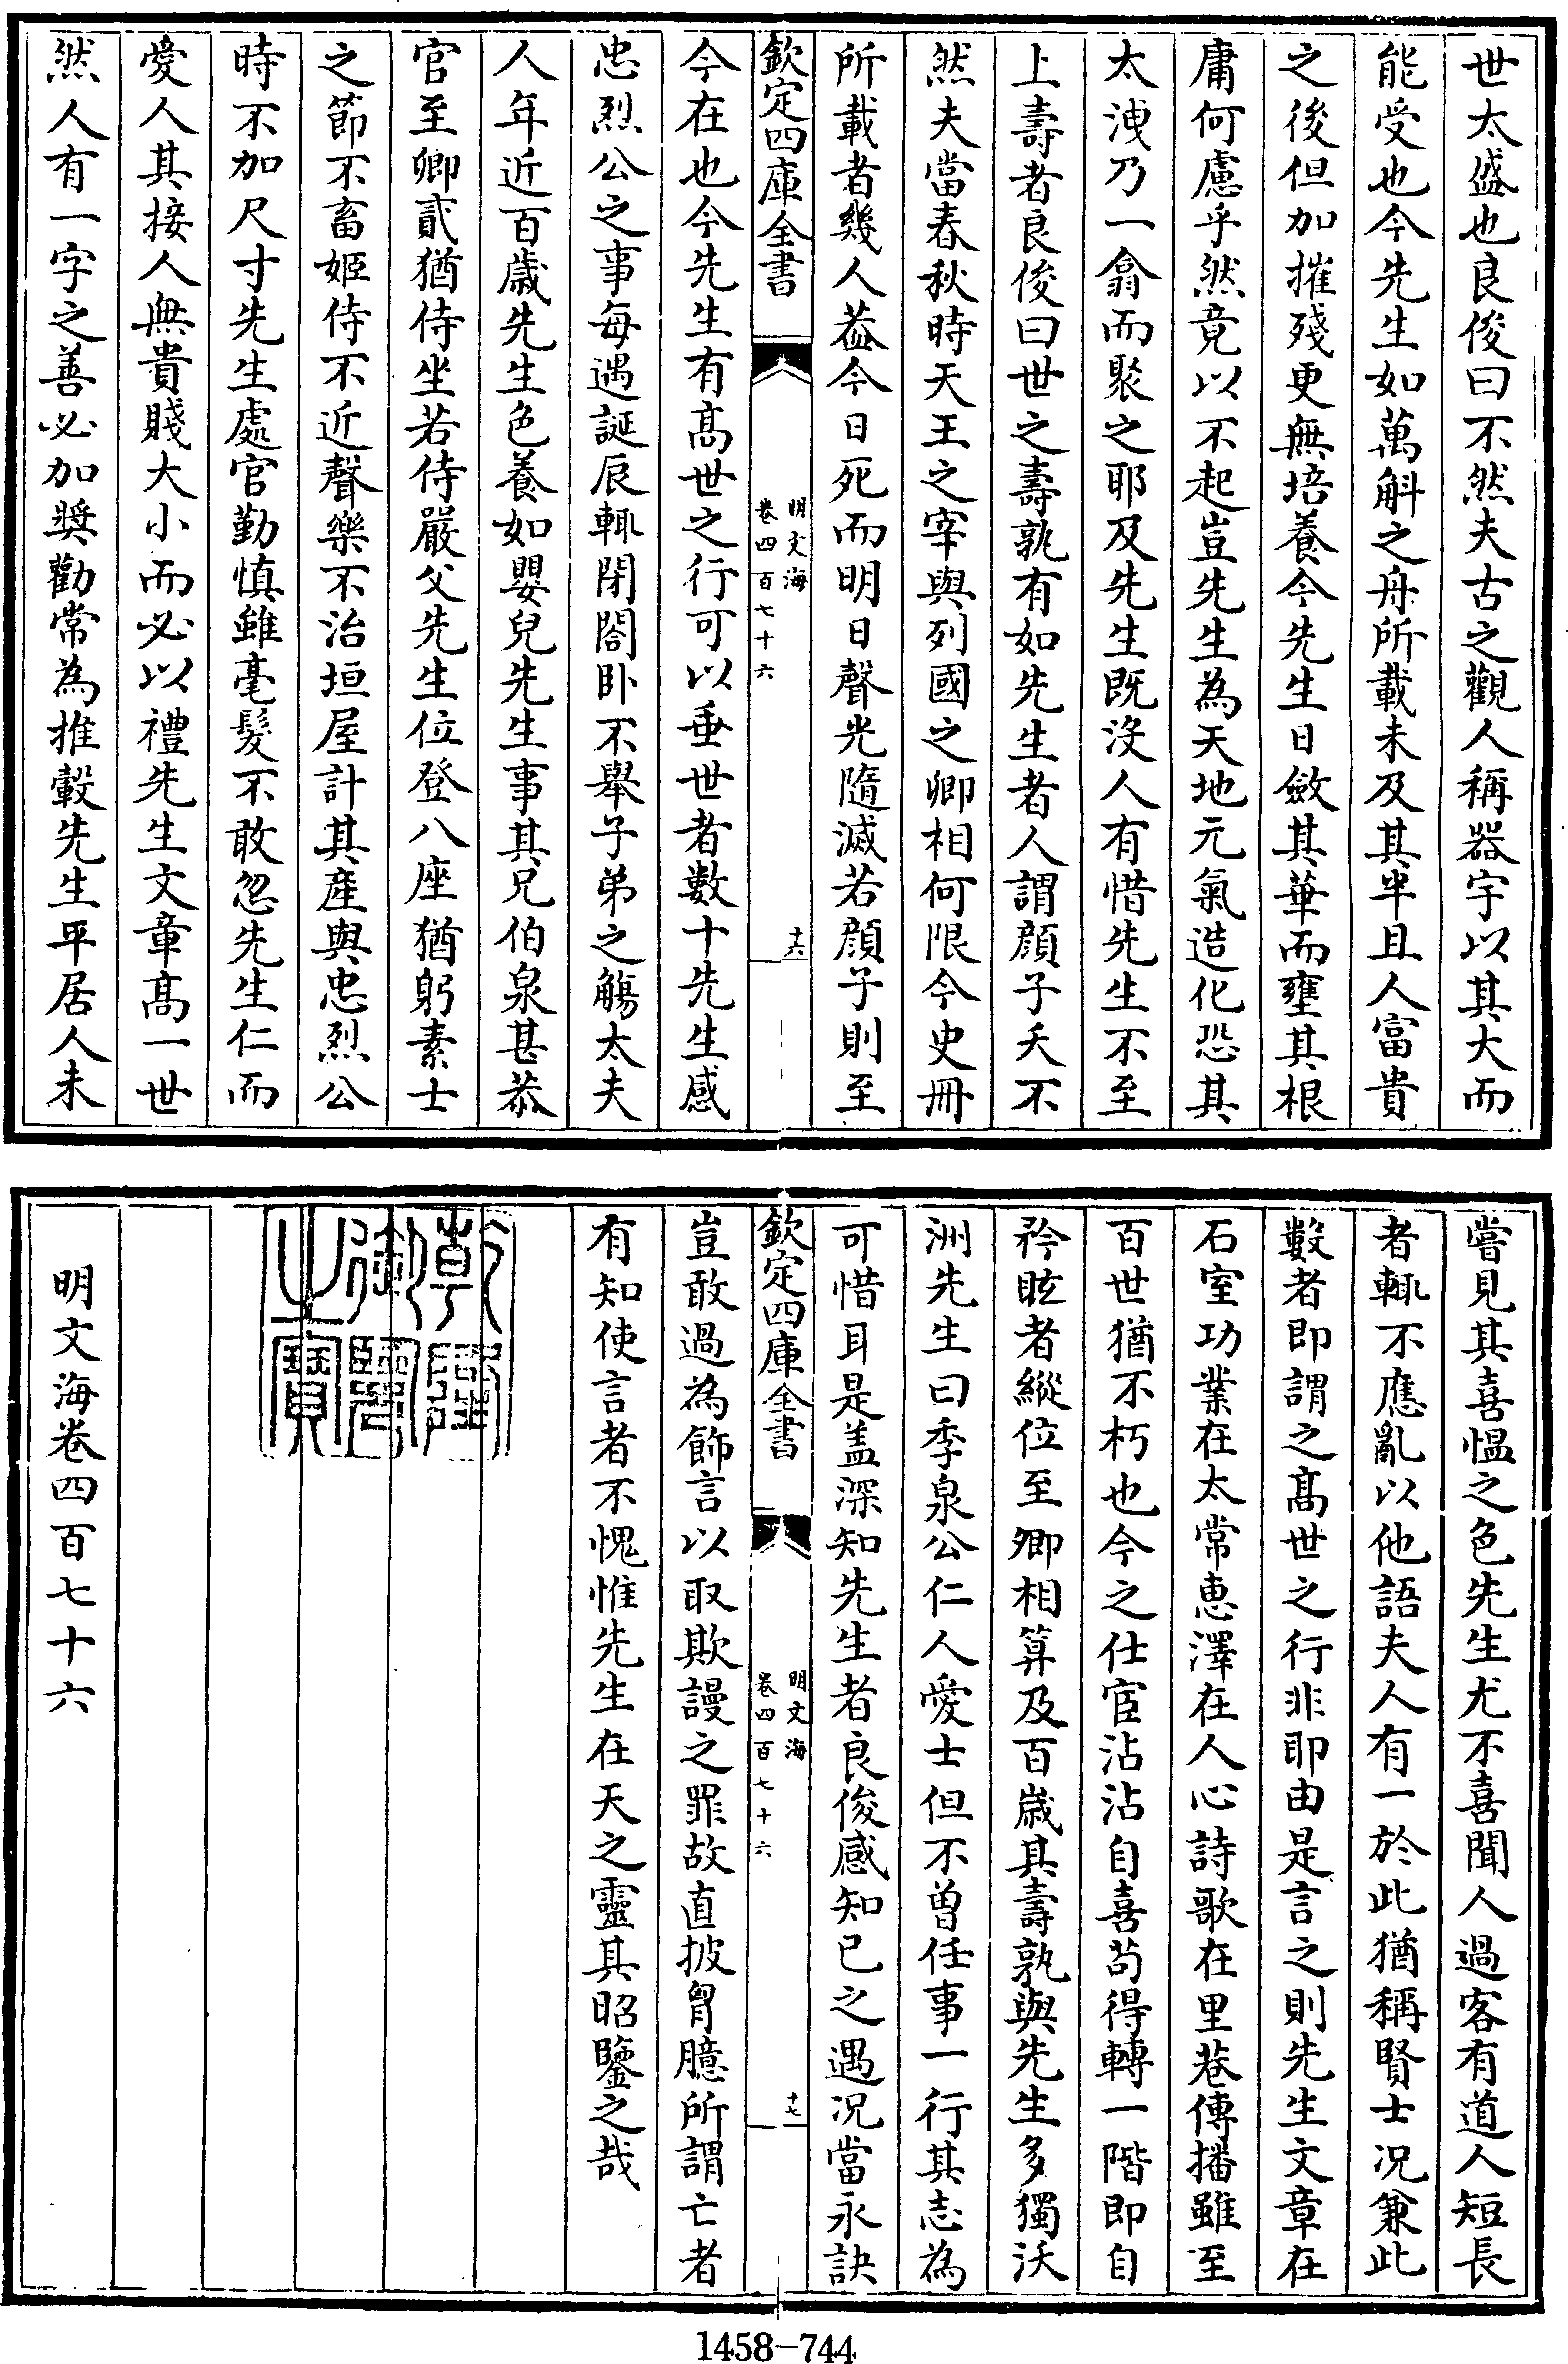 世太盛也良俊曰不然夫古之觀人稱器宇以其大而
能受也今先生如萬斛之舟所載未及其半且人富貴
之後但加摧殘更無培養今先生日斂其華而壅其根
庸何慮乎然竟以不起豈先生為天地元氣造化恐其
太洩乃一翕而聚之耶及先生既沒人有惜先生不至
上壽者良俊曰世之壽孰有如先生者人謂顔子夭不
然夫當春秋時天王之宰與列國之卿相何限今史冊
所載者幾人葢今日死而明日聲光隨滅若顔子則至
欽定四庫全書
明文海
卷四百七十六
十六
今在也今先生有髙世之行可以垂世者數十先生感
忠烈公之事每遇誕辰輒閉閤卧不舉子弟之觴太夫
人年近百歲先生色養如嬰兒先生事其兄伯泉甚恭
官至卿貳猶侍坐若侍嚴父先生位登八座猶躬素士
之節不畜姬侍不近聲樂不治垣屋計其産與忠烈公
時不加尺寸先生處官勤慎雖毫髮不敢忽先生仁而
愛人其接人無貴賤大小而必以禮先生文章髙一世
然人有一字之善必加奬勸常為推轂先生平居人未
嘗見其喜愠之色先生尤不喜聞人過客有道人短長
者輒不應亂以他語夫人有一於此猶稱賢士况兼此
數者即謂之髙世之行非耶由是言之則先生文章在
石室功業在太常恵澤在人心詩歌在里巷傳播雖至
百世猶不朽也今之仕宦沾沾自喜苟得轉一階即自
矜眩者縱位至卿相算及百歲其壽孰與先生多獨沃
洲先生曰季泉公仁人愛士但不曾任事一行其志為
可惜耳是盖深知先生者良俊感知已之遇况當永訣
欽定四庫全書
明文海
卷四百七十六
十七
豈敢過為飾言以取欺謾之罪故直披胷臆所謂亡者
有知使言者不愧惟先生在天之靈其昭鑒之哉
乾隆
御覽
之寶
明文海卷四百七十六
1458-744